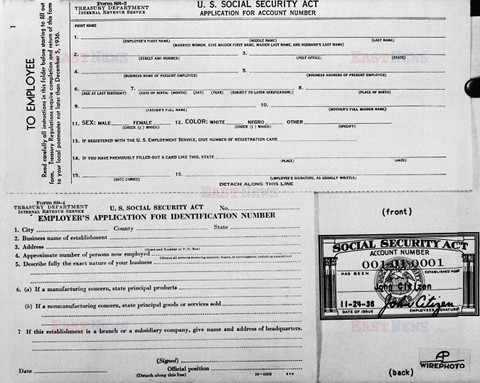 Form SS-5
TREASURY DEPARTMENT
INTERNAL REVENUE SERVICE
U. S. SOCIAL SECURITY ACT
APPLICATION FOR ACCOUNT NUMBER
1
TO EMPLOYEE
Read carefully all instructions in this folder before starting to fill out
form. Treasury Regulations require completion and return of this form
to your local postmaster not later than December 5, 1936.
PRINT NAME
1.
(EMPLOYEE'S FIRST NAME) (MIDDLE NAME) (LAST NAME)
(MARRIED WOMEN: GIVE MAIDEN FIRST NAME, MAIDEN LAST NAME, AND HUSBAND'S LAST NAME)
2. 3.
(STREET AND NUMBER) (POST OFFICE) (STATE)
4. 5.
(BUSINESS NAME OF PRESENT EMPLOYER) (BUSINESS ADDRESS OF PRESENT EMPLOYER)
6. 7. 8.
(AGE AT LAST BIRTHDAY) (DATE OF BIRTH: (MONTH) (DAY) (YEAR) (SUBJECT TO LATER VERIFICATION) (PLACE OF BIRTH)
9. 10.
(FATHER'S FULL NAME) (MOTHER'S FULL MAIDEN NAME)
11. SEX: MALE FEMALE 12. COLOR: WHITE NEGRO OTHER
(CHECK (✓) WHICH) (CHECK (✓) WHICH) (SPECIFY)
13. IF REGISTERED WITH THE U. S. EMPLOYMENT SERVICE, GIVE NUMBER OF REGISTRATION CARD
14. IF YOU HAVE PREVIOUSLY FILLED OUT A CARD LIKE THIS, STATE
(PLACE) (DATE)
15.
(DATE SIGNED) (EMPLOYEE'S SIGNATURE, AS USUALLY WRITTEN)
DETACH ALONG THIS LINE
FORM SS-4
TREASURY DEPARTMENT
INTERNAL REVENUE SERVICE
U. S. SOCIAL SECURITY ACT No.
EMPLOYER'S APPLICATION FOR IDENTIFICATION NUMBER
1. City County State
2. Business name of establishment
3. Address
(Street and Number or P. O. Box)
4. Approximate number of persons now employed
5. Describe fully the exact nature of your business
6. (a) If a manufacturing concern, state principal products
(b) If a nonmanufacturing concern, state principal goods or services sold
7 If this establishment is a branch or a subsidiary company, give name and address of headquarters.
(Signed)
Date Official position
(Detach along this line)
(front)
SOCIAL SECURITY ACT
ACCOUNT NUMBER
001-01-0001
HAS BEEN ESTABLISHED FOR
John Citizen
11-24-36 John Citizen
DATE OF ISSUE EMPLOYEE'S SIGNATURE
(back)
AP
WIREPHOTO
EAST NEWS
EAST NEWS
EAST NEWS
EAST NEWS
EAST NEWS
EAST NEWS